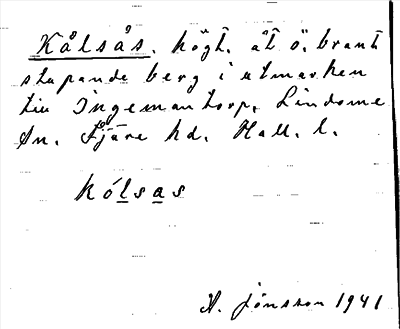 Kålsås, högt, åt ö. brant
stupande berg i utmarken
till Ingemantorp, Lindome
sn. Fjäre hd. Hall. l.
kólsas
A. Jönsson 1941